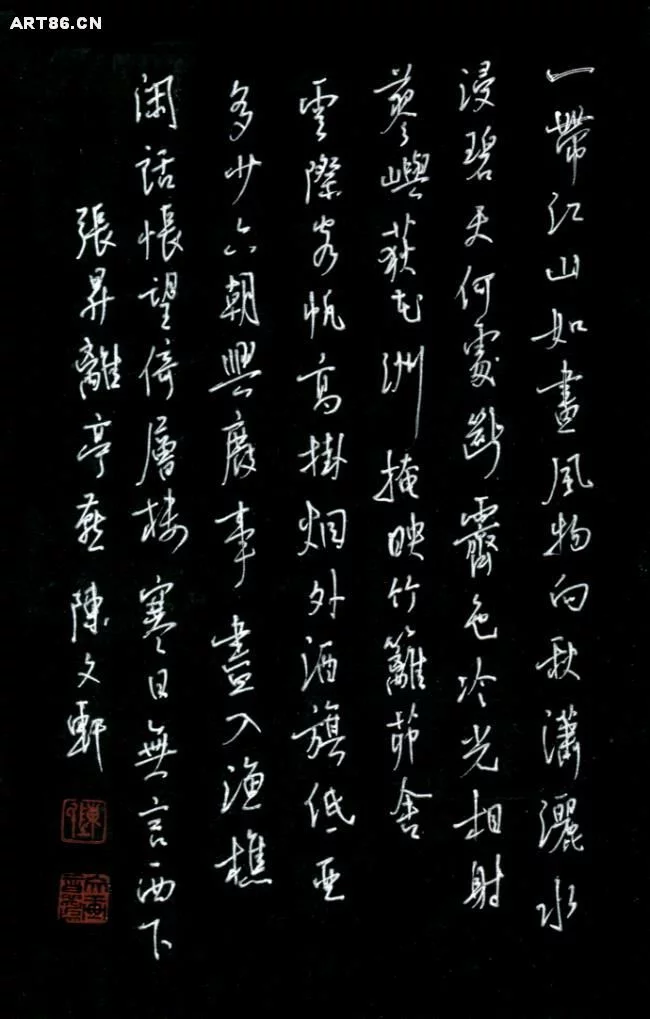 ART86.CN
一帶江山如畫風物向秋瀟灑水
浸碧天何處斷霽色冷光相射
蓼嶼荻花洲掩映竹籬茆舍
雲際客帆高掛烟外酒旗低亞
多少六朝興廢事盡入漁樵
閑話悵望倚層樓寒日無言西下
張昇離亭燕 陳文